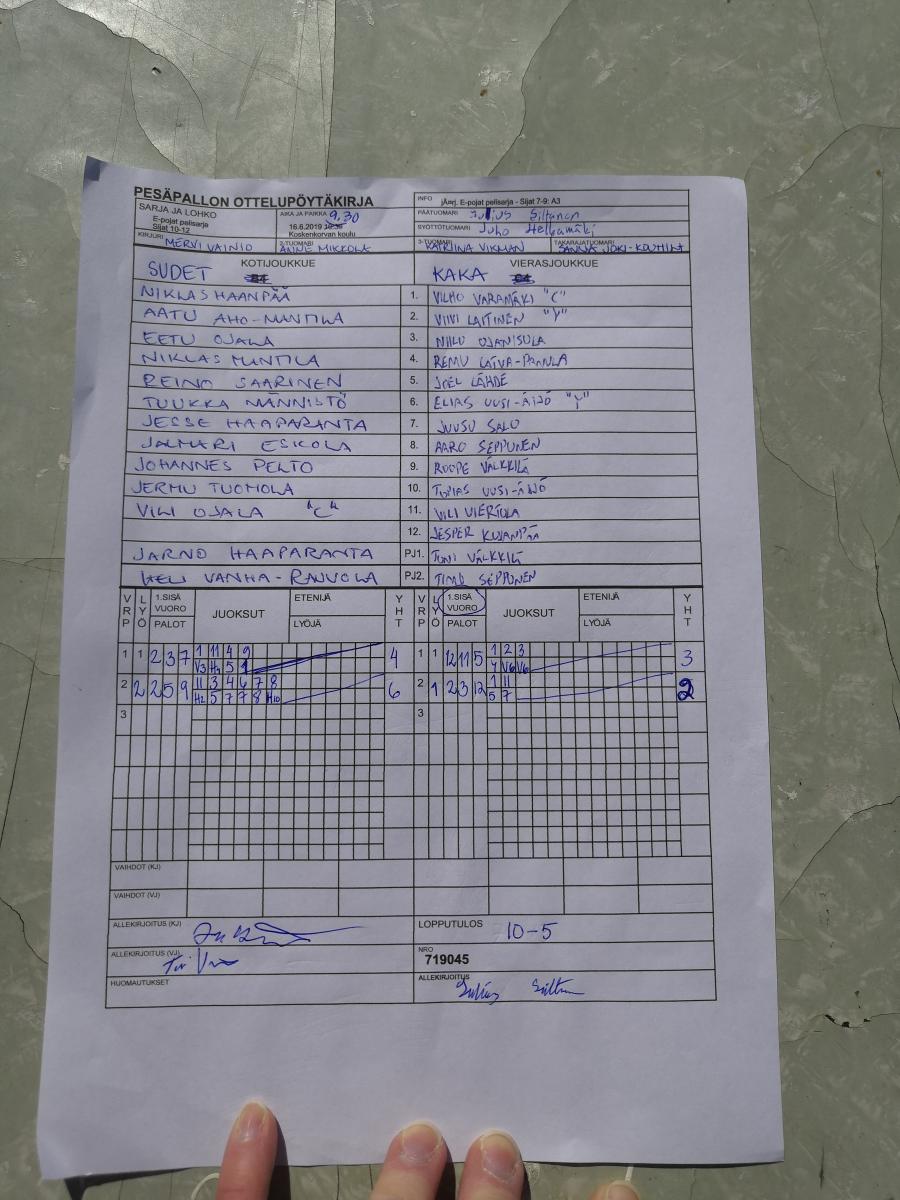 PESÄPALLON OTTELUPÖYTÄKIRJA
SARJA JA LOHKO
E-pojat pelisarja
Sijat 10-12
AIKA JA PAIKKA 9.30
16.6.2019
Koskenkorvan koulu
INFO jÄsrj. E-pojat pelisarja - Sijat 7-9: A3
PÄÄTUOMARI Julius Siltanen
SYÖTTÖTUOMARI Juho Helkamäki
KIRJURI MERVI VAINIO
2-TUOMARI ANNE MIKKOLA
3-TUOMARI KATRIINA VIKMAN
TAKARAJATUOMARI SANNA JOKI-
SUDET KOTIJOUKKUE
KAKA VIERASJOUKKUE
NIKLAS HAANPÄÄ 1. VILHO VARAMÄKI "C"
AATU AHO-MANTILA 2. VIIVI LAITINEN "Y"
EETU OJALA 3. NIILO OJANISULA
NIKLAS MANTILA 4. REMU LATVA-
REINO SAARINEN 5. JOEL LÄHDE
TUUKKA MÄNNISTÖ 6. ELIAS UUSI-ÄIJÖ "Y"
JESSE HAAPARANTA 7. JUUSU SALO
JALMARI ESKOLA 8. AARO SEPPONEN
JOHANNES PELTO 9. ROOPE VÄLKKILÄ
JERMU TUOMOLA 10. TOPIAS UUSI-ÄIJÖ
VILI OJALA "C" 11. VILI VIERTOLA
12. JESPER KUJANPÄÄ
JARNO HAAPARANTA PJ1. TONI VÄLKKILÄ
HELI VANHA-RAUVOLA PJ2. TIMO SEPPONEN
VRP LYÖ 1.SISÄ VUORO PALOT JUOKSUT ETENIJÄ LYÖJÄ YHT VRP LYÖ 1.SISÄ VUORO PALOT JUOKSUT ETENIJÄ LYÖJÄ YHT
1 1 2 3 7 1 11 4 9 4 1 1 12 11 5 1 2 3 3
V3 H4 5 1 Y V6 V6
2 2 2 5 9 11 3 4 6 7 8 6 2 1 2 3 12 1 11 2
H2 5 7 7 8 H10 5 7
3 3
VAIHDOT (KJ)
VAIHDOT (VJ)
ALLEKIRJOITUS (KJ)
LOPPUTULOS 10-5
ALLEKIRJOITUS (VJ)
NRO
719045
HUOMAUTUKSET
ALLEKIRJOITUS
Julius